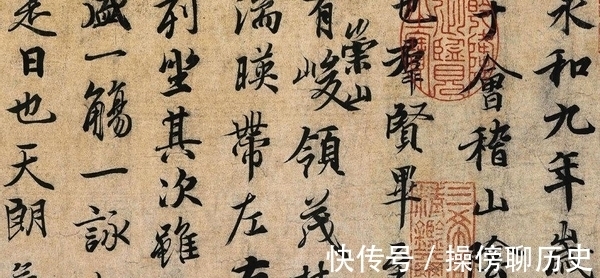 永和九年歲
于會稽山
也羣賢畢
有崇山峻領茂林
湍暎帶左
列坐其次雖
盛一觴一詠
是日也天朗氣
快传号 / 操傍聊历史